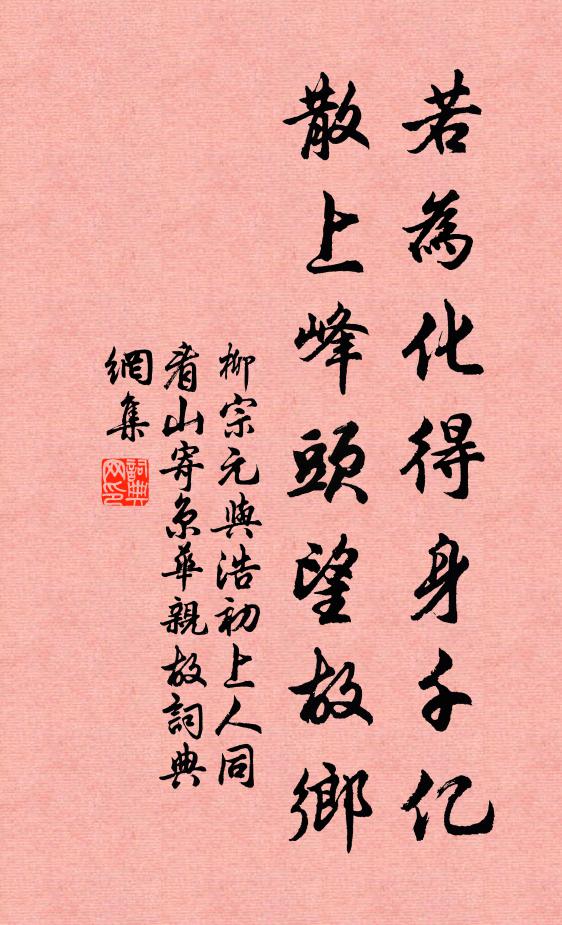 若為化得身千億
散上峰頭望故鄉
柳宗元與浩初上人同
看山寄京華親故詞典
網集
詞典
网印